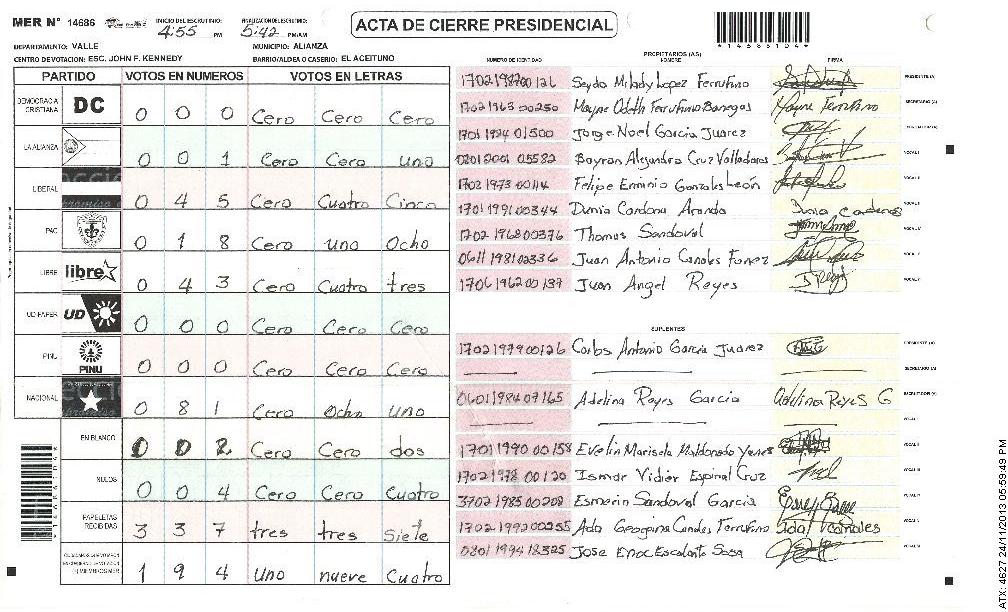 MER Nº 14686 INICIO DEL ESCRUTINIO: 4:55 PM FINALIZACION DEL ESCRUTINIO: 5:42 PM/AM
ACTA DE CIERRE PRESIDENCIAL
*14686104*
DEPARTAMENTO: VALLE MUNICIPIO: ALIANZA
CENTRO DE VOTACION: ESC. JOHN F. KENNEDY BARRIO/ALDEA O CASERIO: EL ACEITUNO
PARTIDO VOTOS EN NUMEROS VOTOS EN LETRAS
DEMOCRACIA CRISTIANA DC 0 0 0 Cero Cero Cero
LA ALIANZA 0 0 1 Cero Cero uno
LIBERAL 0 4 5 Cero Cuatro Cinco
PAC 0 1 8 Cero uno Ocho
LIBRE libre 0 4 3 Cero Cuatro tres
UD FAPER UD 0 0 0 Cero Cero Cero
PINU PINU 0 0 0 Cero Cero Cero
NACIONAL 0 8 1 Cero Ocho uno
EN BLANCO 0 0 2 Cero Cero dos
NULOS 0 0 4 Cero Cero Cuatro
PAPELETAS RECIBIDAS 3 3 7 tres tres Siete
1 9 4 Uno nueve Cuatro
PROPIETARIOS (AS)
NUMERO DE IDENTIDAD NOMBRE FIRMA
Seyda Milady Lopez Ferrufino PRESIDENTE (A)
1702 1963 00250 Mayne Odeth Ferrufino Banegas Mayne Ferrufino SECRETARIO (A)
1701 1994 01500 Jorge Noel Garcia Juarez ESCRUTADOR (A)
0801 2001 05582 Bayron Alejandro Cruz Valladares VOCAL I
1702 1973 00114 Felipe Erminio Gonzales León VOCAL II
1701 1991 00344 Dunia Cardona Aranda VOCAL
1702 1968 00376 Thomas Sandoval VOCAL
0611 1981 02336 Juan Antonio Canales VOCAL
1706 1962 00137 Juan Angel Reyes VOCAL
SUPLENTES
1702 1979 00126 Carlos Antonio Garcia Juarez PRESIDENTE (A)
SECRETARIO (A)
0601 1984 07165 Adelina Reyes Garcia Adelina Reyes G ESCRUTADOR (A)
VOCAL I
1701 1990 00158 Evelin Marisela Maldonado Yanes VOCAL II
1702 1978 00120 Ismar Vidier Espinal Cruz VOCAL III
3702 1985 00202 Esmerin Sandoval Garcia VOCAL
1702 1992 00255 Ada Georgina Canales Ferrufino VOCAL
0801 1994 18325 Jose Enoc Escalante Sosa VOCAL
ATX: 4627 24/11/2013 05:59:49 PM